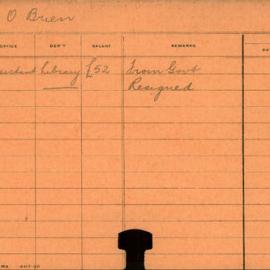 O Brien
OFFICE DEP'T SALARY REMARKS
Library £52 From Govt
Resigned